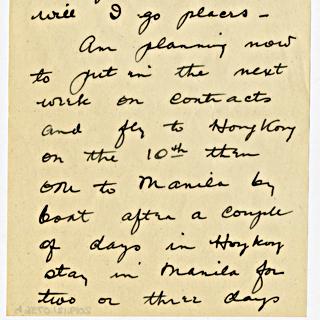 will I go places –
Am planning now
to put in the next
week on contracts
and fly to Hong Kong
on the 10th then
on to Manila by
boat after a couple
of days in Hong Kong
stay in Manila for
two or three days